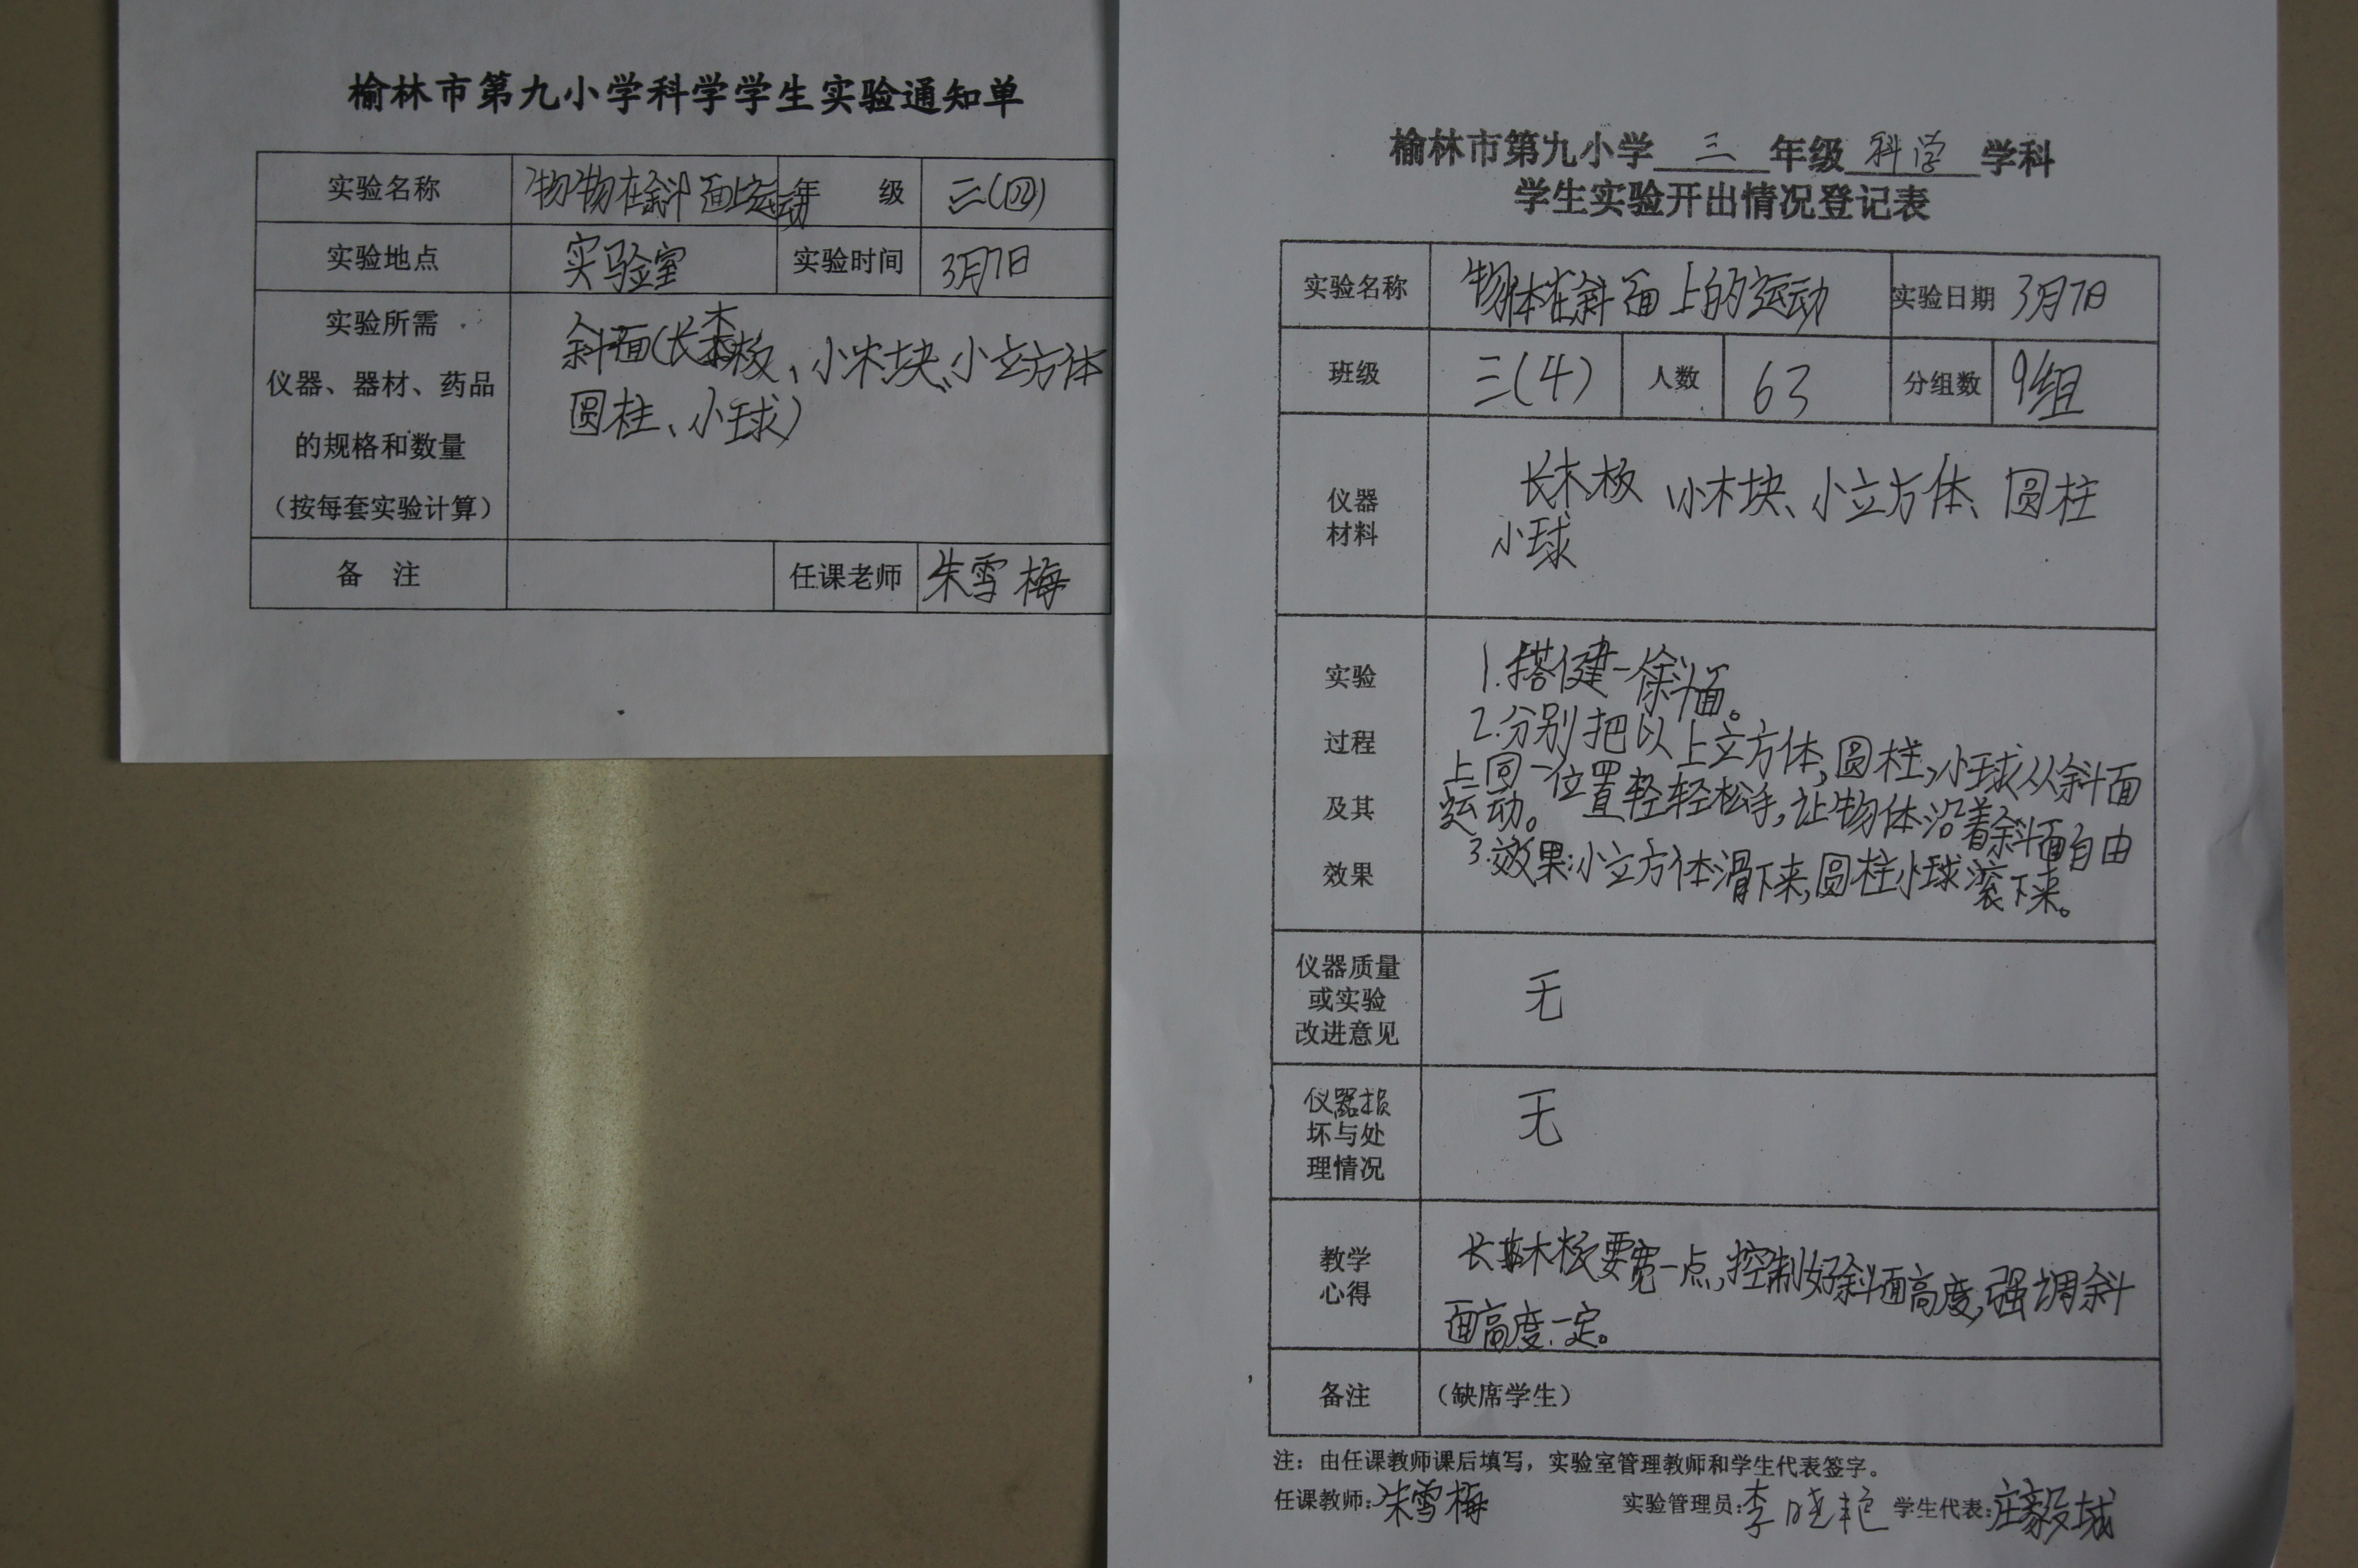 榆林市第九小学科学学生实验通知单
实验名称 物物在斜面上运动 年 级 三(四)
实验地点 实验室 实验时间 3月7日
实验所需
仪器、器材、药品
的规格和数量
（按每套实验计算）
斜面(长木板、小木块、小立方体
圆柱、小球)
备 注 任课老师 朱雪梅
榆林市第九小学 三 年级 科学 学科
学生实验开出情况登记表
实验名称 物体在斜面上的运动 实验日期 3月7日
班级 三(4) 人数 63 分组数 9组
仪器
材料
长木板 小木块、小立方体、圆柱
小球
实验
过程
及其
效果
1.搭健一斜面。
2.分别把以上立方体,圆柱,小球从斜面
上同一位置轻轻松手,让物体沿着斜面自由
运动。
3.效果:小立方体滑下来,圆柱小球滚下来。
仪器质量
或实验
改进意见
无
仪器损
坏与处
理情况
无
教学
心得
长木板要宽一点,控制好斜面高度,强调斜
面高度一定。
备注 （缺席学生）
注：由任课教师课后填写，实验室管理教师和学生代表签字。
任课教师:朱雪梅 实验管理员:李晓艳 学生代表:庄毅城